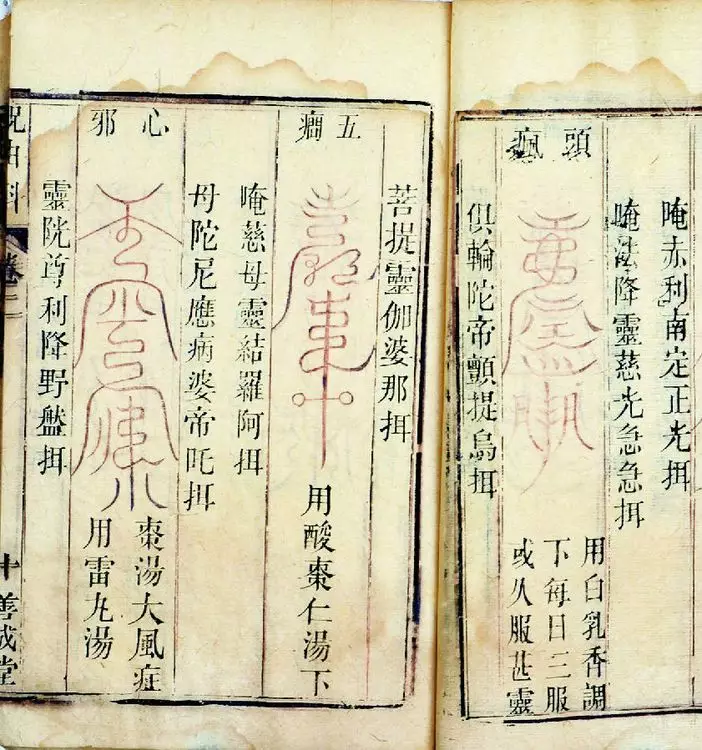 唵赤利南定正光挕
唵法降靈慈光急急挕
頭瘋
用白乳香調
下每日三服
或久服甚靈
俱輪陀帝顫提烏挕
菩提靈伽婆那挕
五癎
用酸棗仁湯下
唵慈母靈結羅阿挕
母陀尼應病婆帝吒挕
心邪
棗湯大風症
用雷丸湯
靈陀尊利降野盤挕
祝由科
卷二
十
善成堂